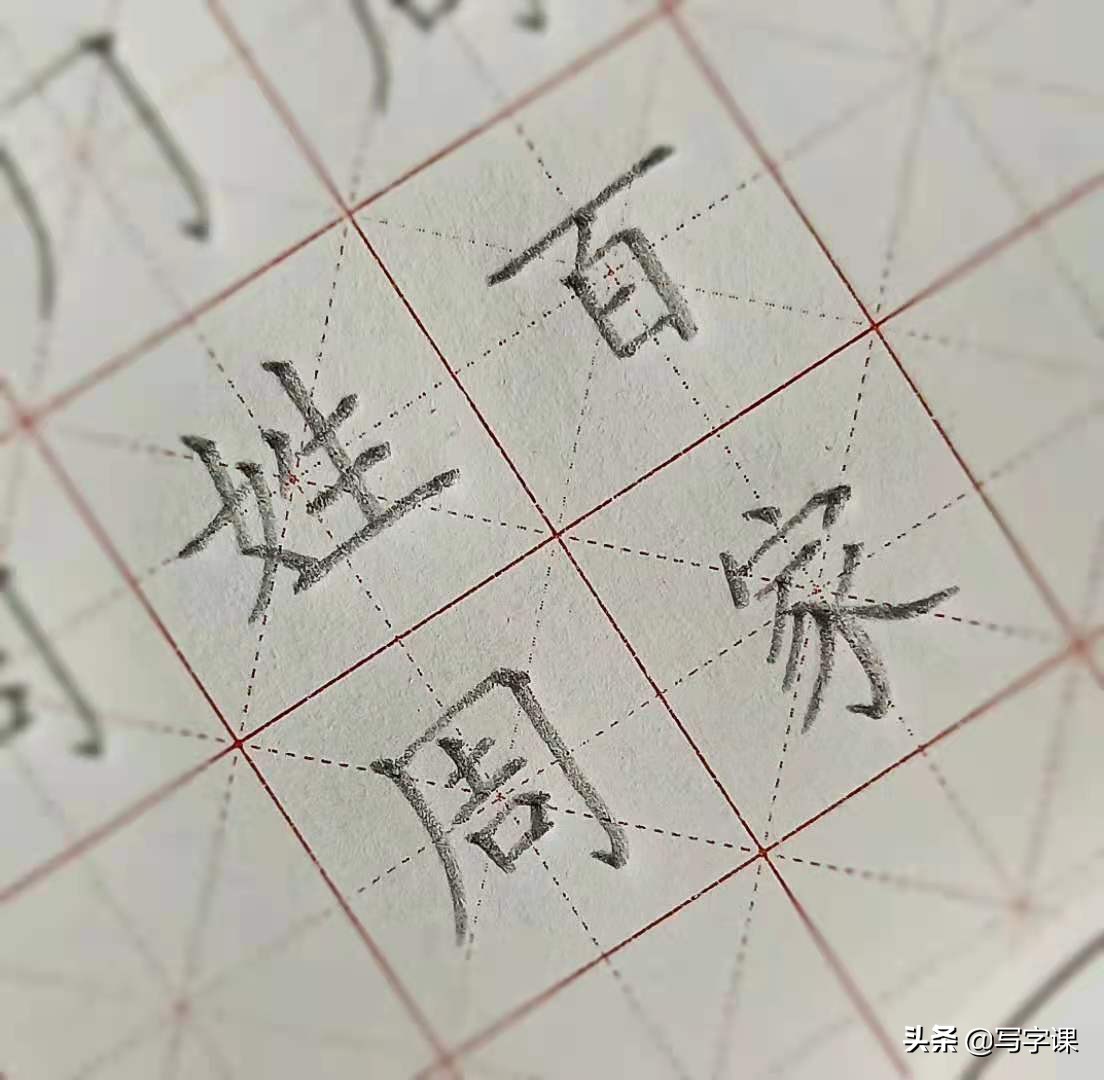 百家
姓周
头条 @写字课